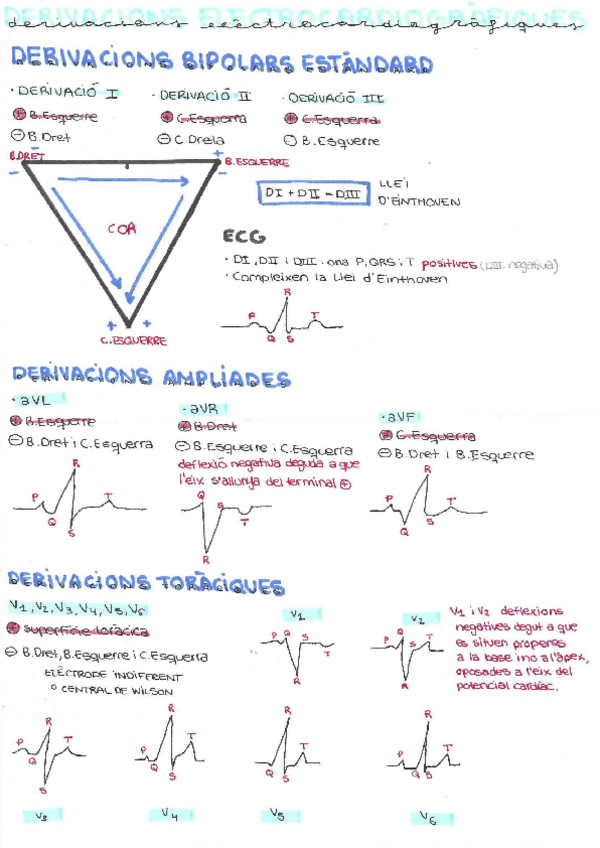 DERIVACIONS ELECTROCARDIOGRÀFIQUES
derivacions electrocardiogràfiques
DERIVACIONS BIPOLARS ESTÀNDARD
· DERIVACIÓ I
· DERIVACIÓ II
· DERIVACIÓ III
⊕ B.Esquerre
⊕ C.Esquerra
⊕ C.Esquerra
⊖ B.Dret
⊖ C.Dreta
B.Esquerre
B.DRET
B.ESQUERRE
− + −
DI + DII = DIII
LLEI
D'EINTHOVEN
COR
ECG
· DI, DII i DIII: ona P, QRS i T positives (DIII negativa)
· Compleixen la Llei d'Einthoven
R
P T
Q S
+ +
C.ESQUERRE
DERIVACIONS AMPLIADES
· aVL
· aVR
· aVF
⊕ B.Esquerre
⊕ B.Dret
⊕ C.Esquerra
⊖ B.Dret i C.Esquerra
⊖ B.Esquerre i C.Esquerra
⊖ B.Dret i B.Esquerre
deflexió negativa deguda a que
l'eix s'allunya del terminal ⊕
R
P T
Q
S
Q S T
R
R
P T
Q S
DERIVACIONS TORÀCIQUES
V1, V2, V3, V4, V5, V6
⊕ superfície toràcica
⊖ B.Dret, B.Esquerre i C.Esquerra
ELÈCTRODE INDIFERENT
O CENTRAL DE WILSON
V1
P Q S T
R
V2
P Q S T
R
V1 i V2 deflexions
negatives degut a que
es situen properes
a la base i no a l'àpex,
oposades a l'eix del
potencial cardíac.
R
P T
Q
S
V3
R
P T
Q S
V4
R
P T
Q S
V5
R
P T
Q S
V6